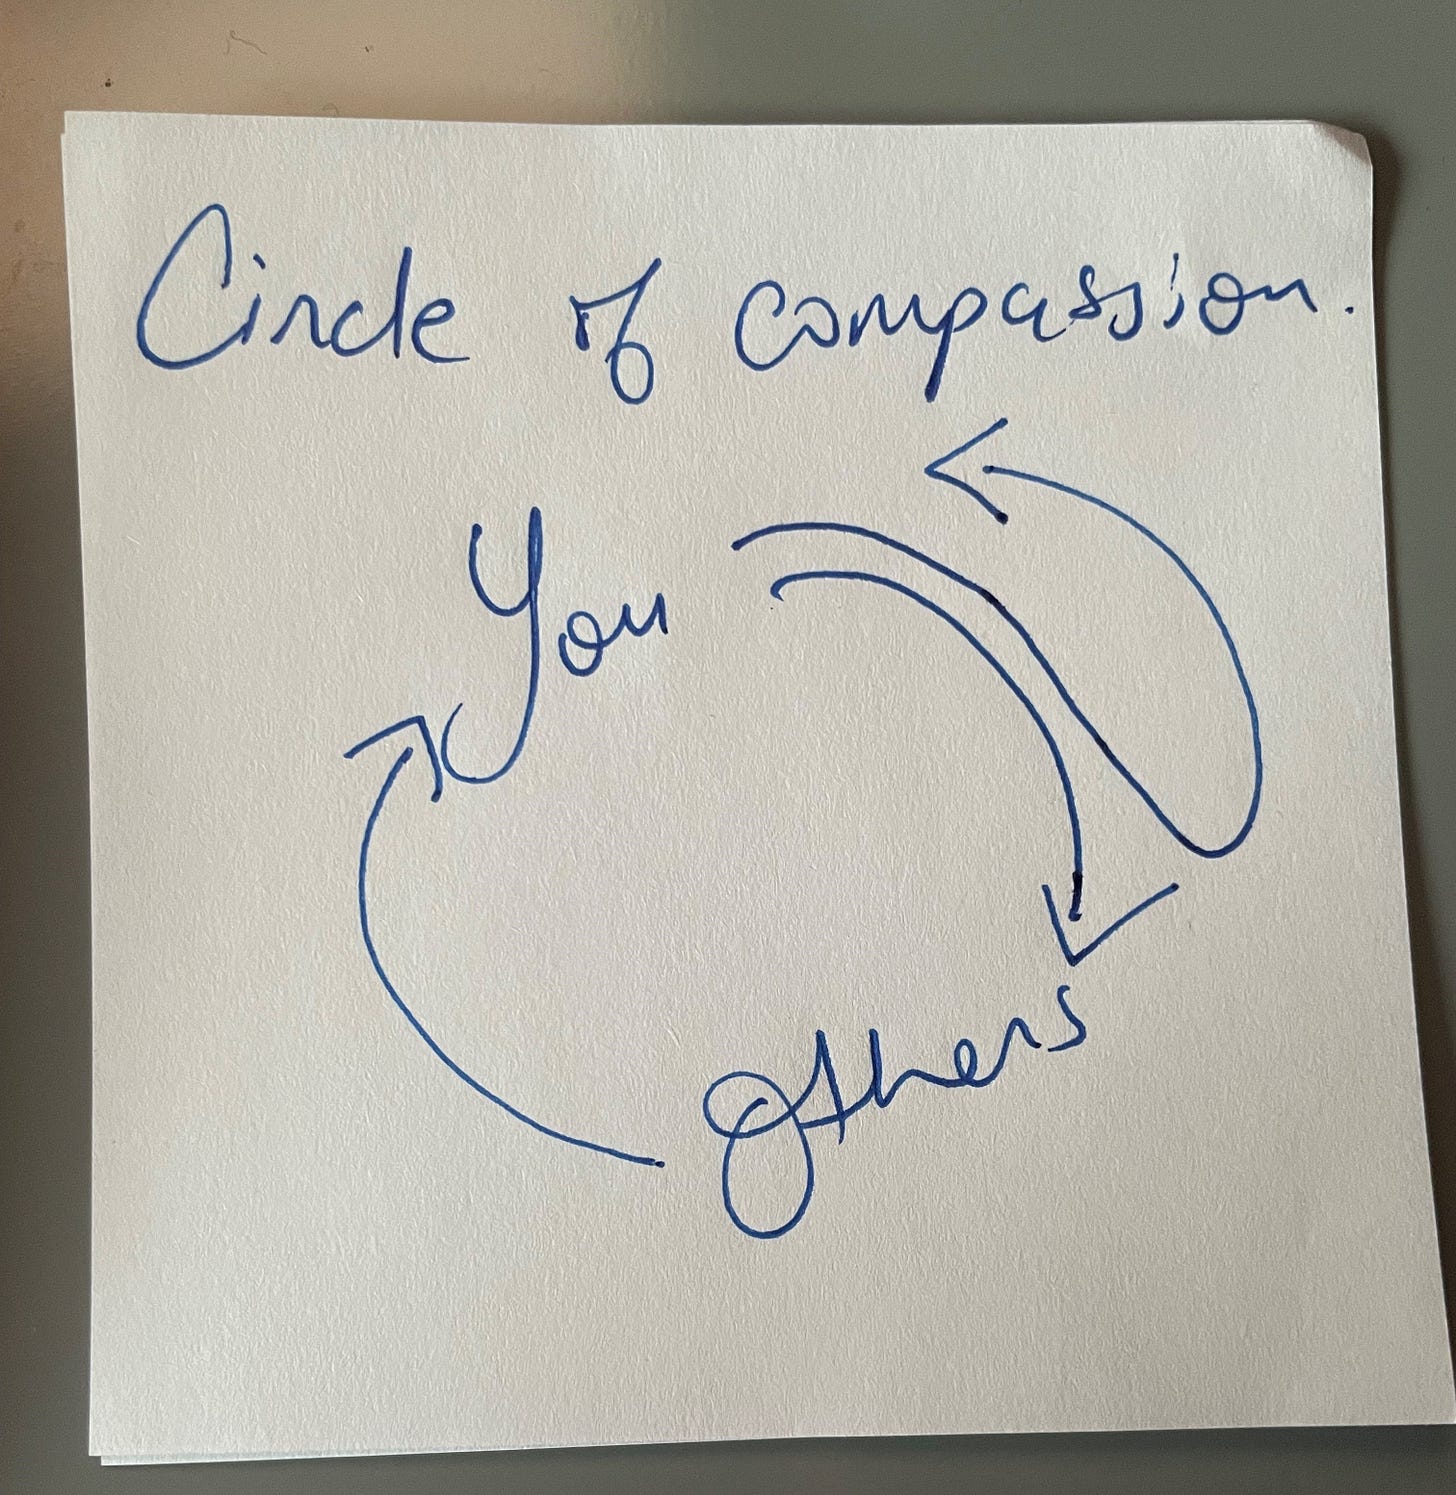 Circle of compassion.
You
Others